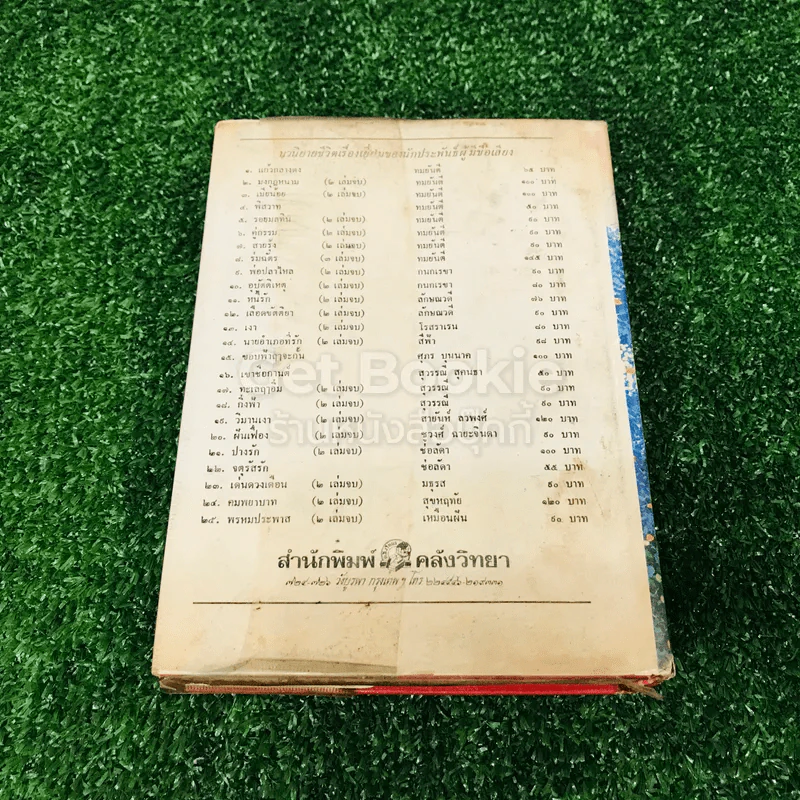 นวนิยายชีวิตเรื่องเยี่ยมของนักประพันธ์ผู้มีชื่อเสียง
๑. แก้วกลางดง ทมยันตี ๖๕ บาท
๒. มงกุฎหนาม (๒ เล่มจบ) ทมยันตี ๑๐๐ บาท
๓. เมียน้อย (๒ เล่มจบ) ทมยันตี ๑๐๐ บาท
๔. พิสวาท ทมยันตี ๕๐ บาท
๕. รอยมลทิน (๒ เล่มจบ) ทมยันตี ๙๐ บาท
๖. คู่กรรม (๒ เล่มจบ) ทมยันตี ๙๐ บาท
๗. สายรุ้ง (๒ เล่มจบ) ทมยันตี ๙๐ บาท
๘. ร่มฉัตร (๓ เล่มจบ) ทมยันตี ๑๔๕ บาท
๙. พ่อปลาไหล (๒ เล่มจบ) กนกเรขา ๙๐ บาท
๑๐. อุบัติเหตุ (๒ เล่มจบ) กนกเรขา ๘๐ บาท
๑๑. หนี้รัก (๒ เล่มจบ) ลักษณวดี ๗๖ บาท
๑๒. เลือดขัตติยา (๒ เล่มจบ) ลักษณวดี ๙๐ บาท
๑๓. เงา (๒ เล่มจบ) โรสลาเรน ๘๐ บาท
๑๔. นายอำเภอที่รัก (๒ เล่มจบ) สีฟ้า ๙๘ บาท
๑๕. ขอบฟ้าสาจะกั้น ศุภร บุนนาค ๑๐๐ บาท
๑๖. เขาชื่อกานต์ สุวรรณี สุคนธา ๕๐ บาท
๑๗. ทะเลฤๅอิ่ม (๒ เล่มจบ) สุวรรณี ๙๐ บาท
๑๘. กิ่งฟ้า (๒ เล่มจบ) สุวรรณี ๙๐ บาท
๑๙. วิมานเงา (๒ เล่มจบ) สายันห์ ลวพงศ์ ๑๒๐ บาท
๒๐. ผืนเฟื่อง (๒ เล่มจบ) ชูวงศ์ ฉายะจินดา ๙๐ บาท
๒๑. ปางรัก (๒ เล่มจบ) ช่อลัดา ๑๐๐ บาท
๒๒. จตุรัสรัก ช่อลัดา ๕๕ บาท
๒๓. เด่นดวงเดือน (๒ เล่มจบ) มธุรส ๙๐ บาท
๒๔. คมพยาบาท (๒ เล่มจบ) สุขหฤทัย ๑๒๐ บาท
๒๕. พรหมประพาส (๒ เล่มจบ) เหมือนฝัน ๙๐ บาท
สำนักพิมพ์ คลังวิทยา
๗๒๔-๗๒๖ วังบูรพา กรุงเทพฯ โทร
Get Bookie
ร้านหนังสือบุ๊กกี้